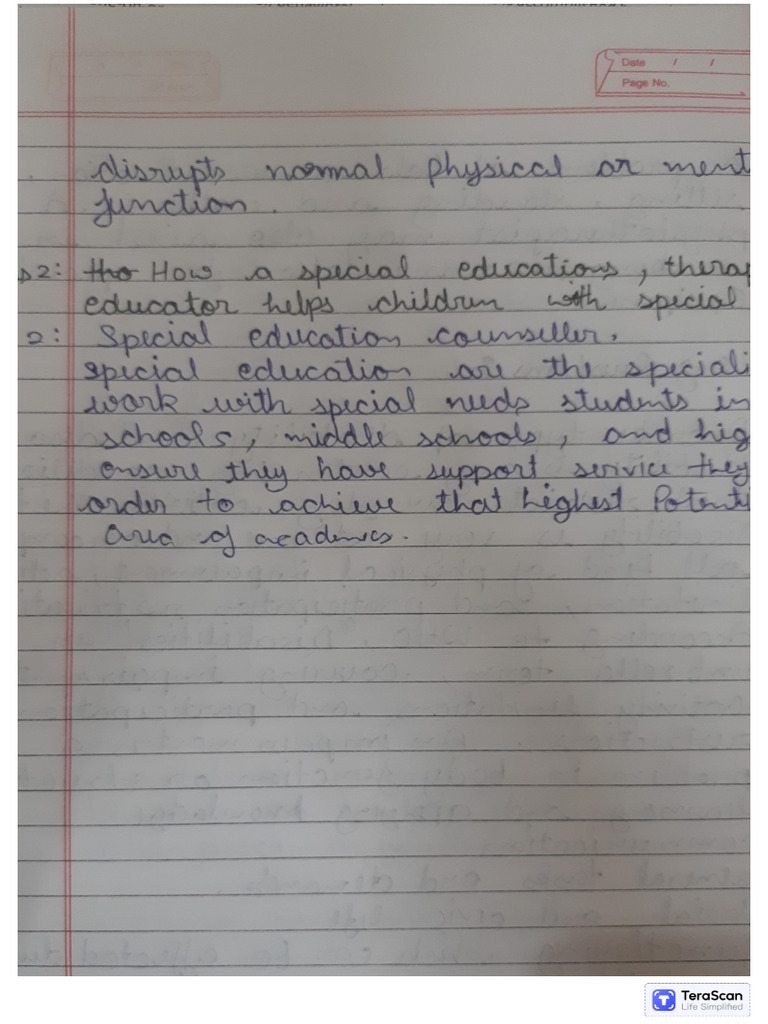 Date / /
Page No.
disrupts normal physical or ment
function.
2: How a special educations, therap
educator helps children with special
2: Special education counseller.
special education are the speciali
work with special needs students in
schools, middle schools, and hig
ensure they have support serivice they
order to achieve that highest Potenti
area of academics.
TeraScan
Life Simplified